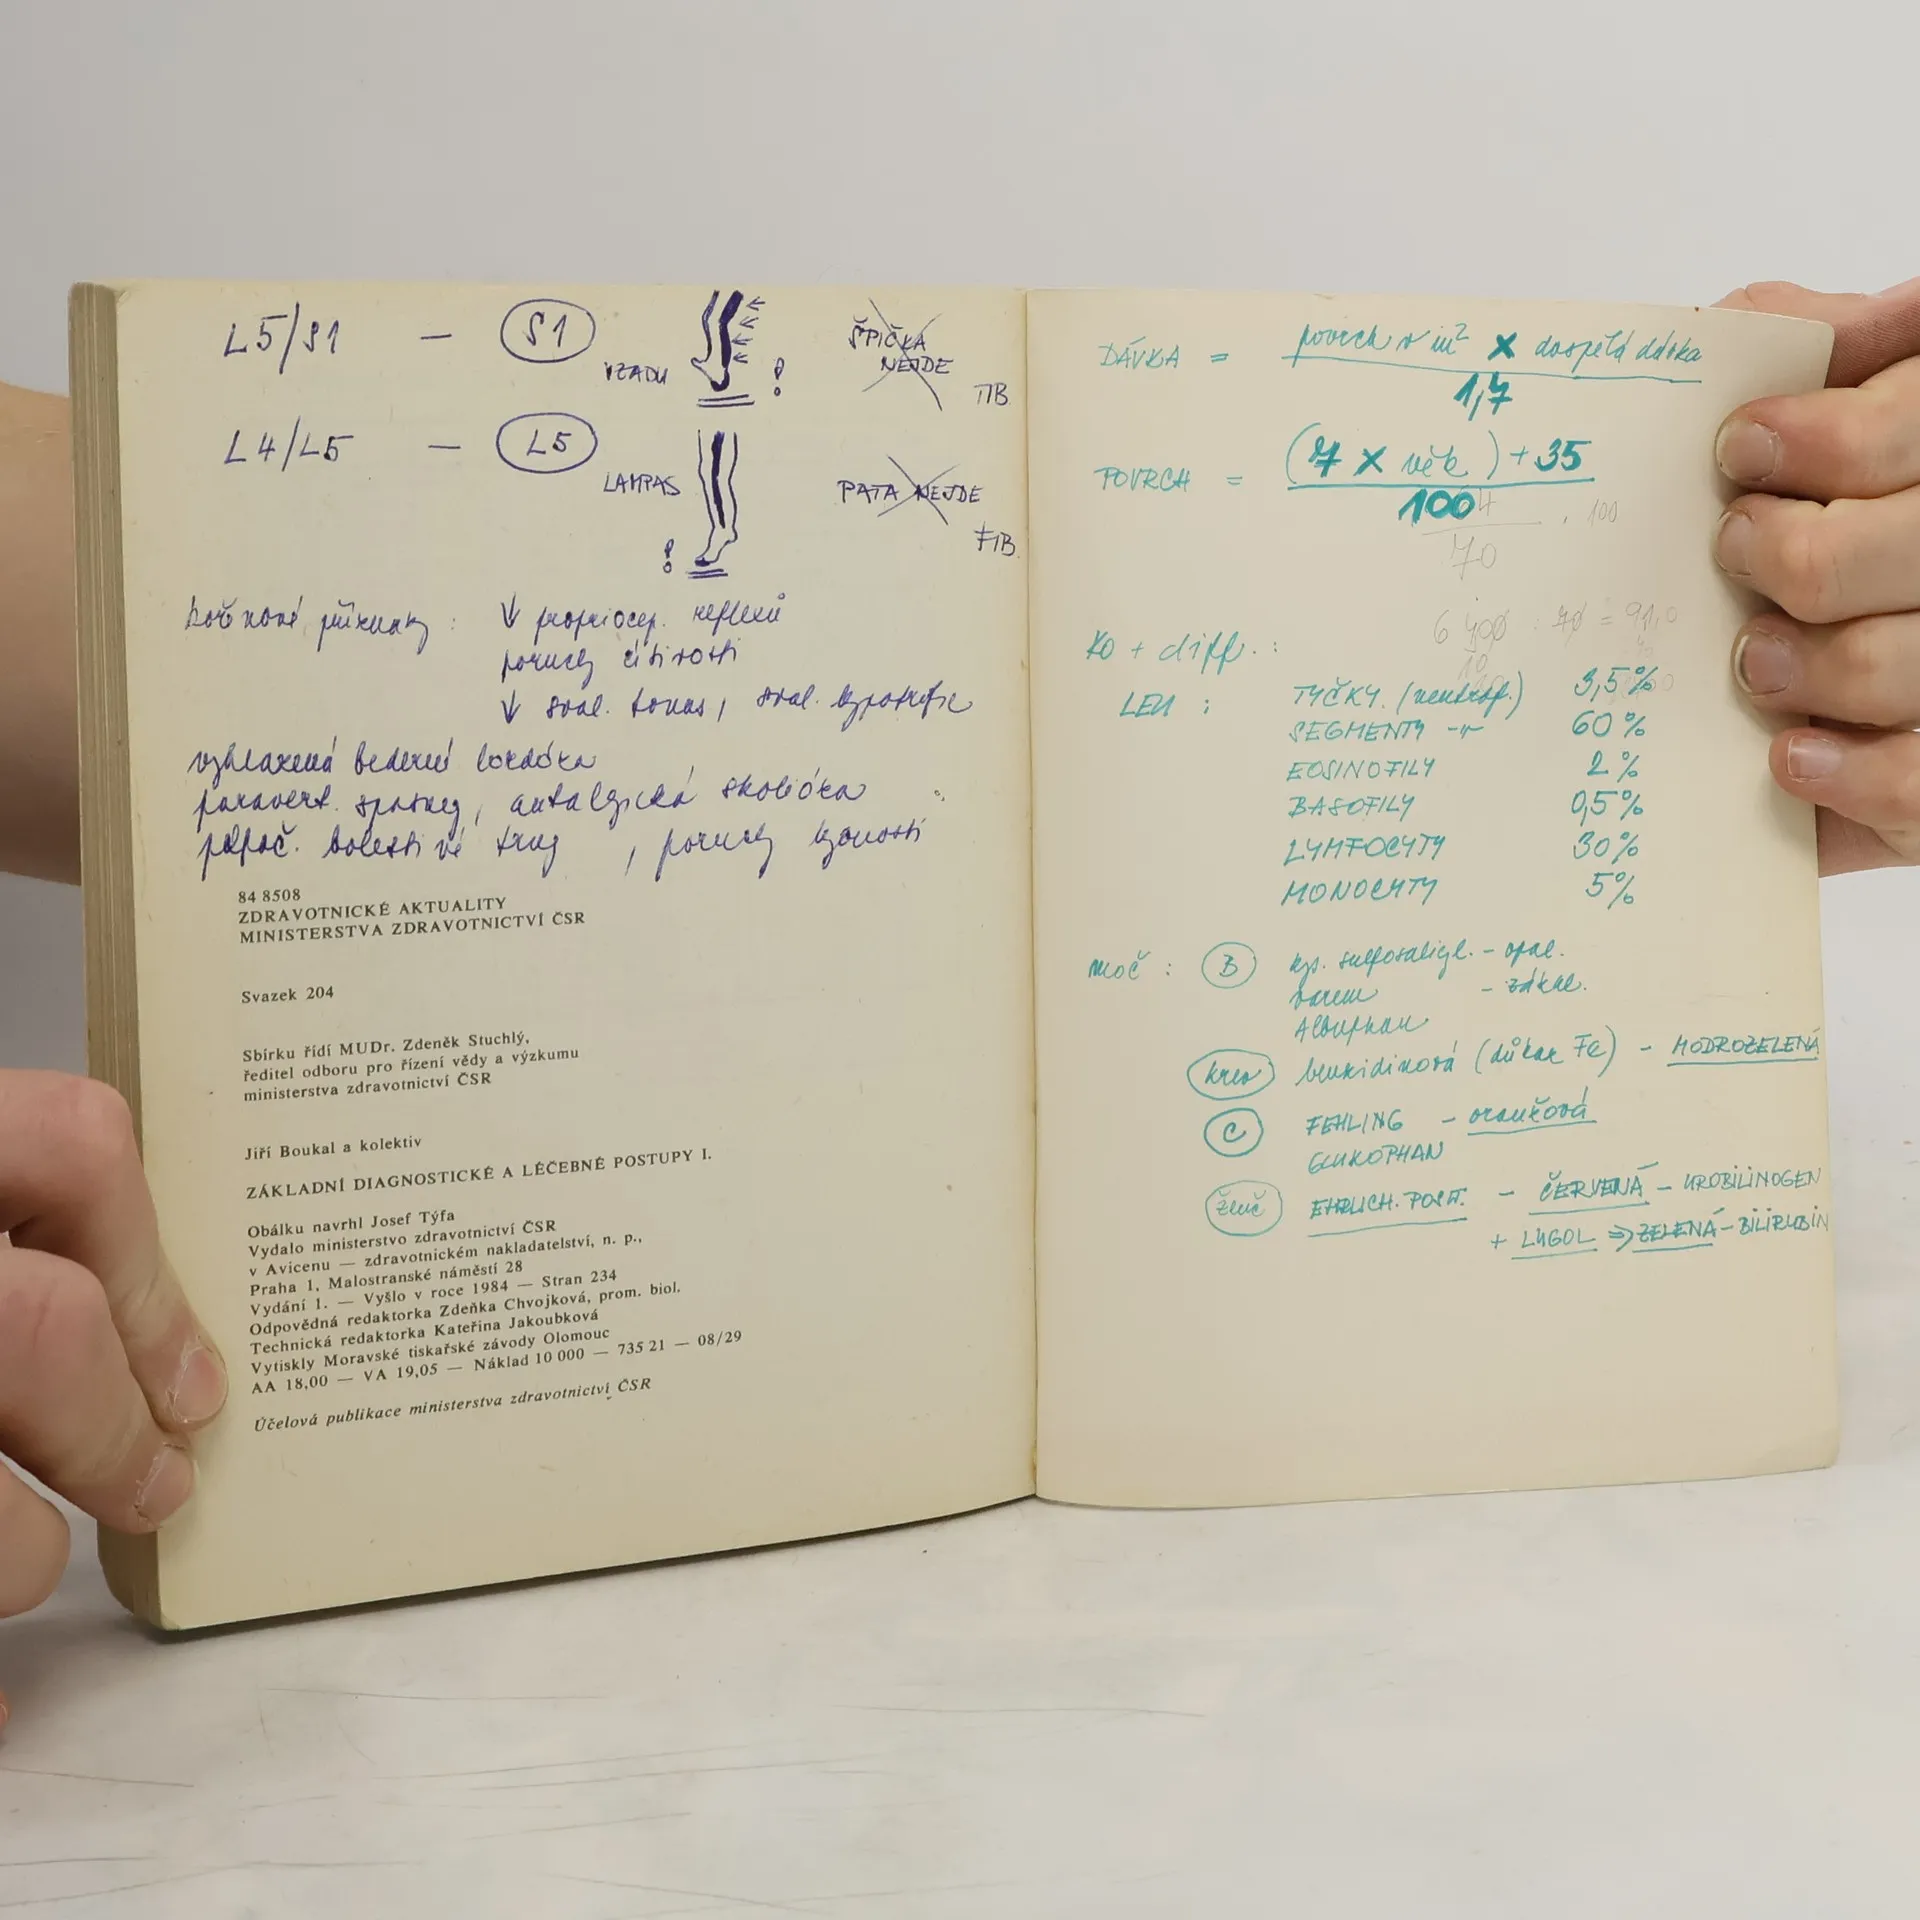 L5/S1 — S1
VZADU
!
ŠPIČKA
NEJDE
TIB.
L4/L5 — L5
LAMPAS
!
PATA NEJDE
FIB.
kořenové příznaky : ↓ propriocep. reflexů
poruchy citivosti
↓ sval. tonus, sval. hypotrofie
vyhlazená bederní lordóza
paravert. spasmy, antalgická skolióza
bolestivé , poruchy hybnosti
84 8508
ZDRAVOTNICKÉ AKTUALITY
MINISTERSTVA ZDRAVOTNICTVÍ ČSR
Svazek 204
Sbírku řídí MUDr. Zdeněk Stuchlý,
ředitel odboru pro řízení vědy a výzkumu
ministerstva zdravotnictví ČSR
Jiří Boukal a kolektiv
ZÁKLADNÍ DIAGNOSTICKÉ A LÉČEBNÉ POSTUPY I.
Obálku navrhl Josef Týfa
Vydalo ministerstvo zdravotnictví ČSR
v Avicenu — zdravotnickém nakladatelství, n. p.,
Praha 1, Malostranské náměstí 28
Vydání 1. — Vyšlo v roce 1984 — Stran 234
Odpovědná redaktorka Zdeňka Chvojková, prom. biol.
Technická redaktorka Kateřina Jakoubková
Vytiskly Moravské tiskařské závody Olomouc
AA 18,00 — VA 19,05 — Náklad 10 000 — 735 21 — 08/29
Účelová publikace ministerstva zdravotnictví ČSR
DÁVKA = povrch v m² x dospělá dávka
1,7
POVRCH = (7 x věk) + 35
100
. 100
70
KO + diff. :
LEU : TYČKY. (neutrof.) 3,5%
SEGMENTY -"- 60%
EOSINOFILY 2%
BASOFILY 0,5%
LYMFOCYTY 30%
MONOCYTY 5%
moč : B kys. sulfosalicyl. - opal.
varem - zákal.
Albuphan
krev benzidinová (důkaz Fe) - MODROZELENÁ
C FEHLING - oranžová
GLUKOPHAN
žluč EHRLICH. POSIT. - ČERVENÁ - UROBILINOGEN
+ LUGOL ⇒ ZELENÁ - BILIRUBIN